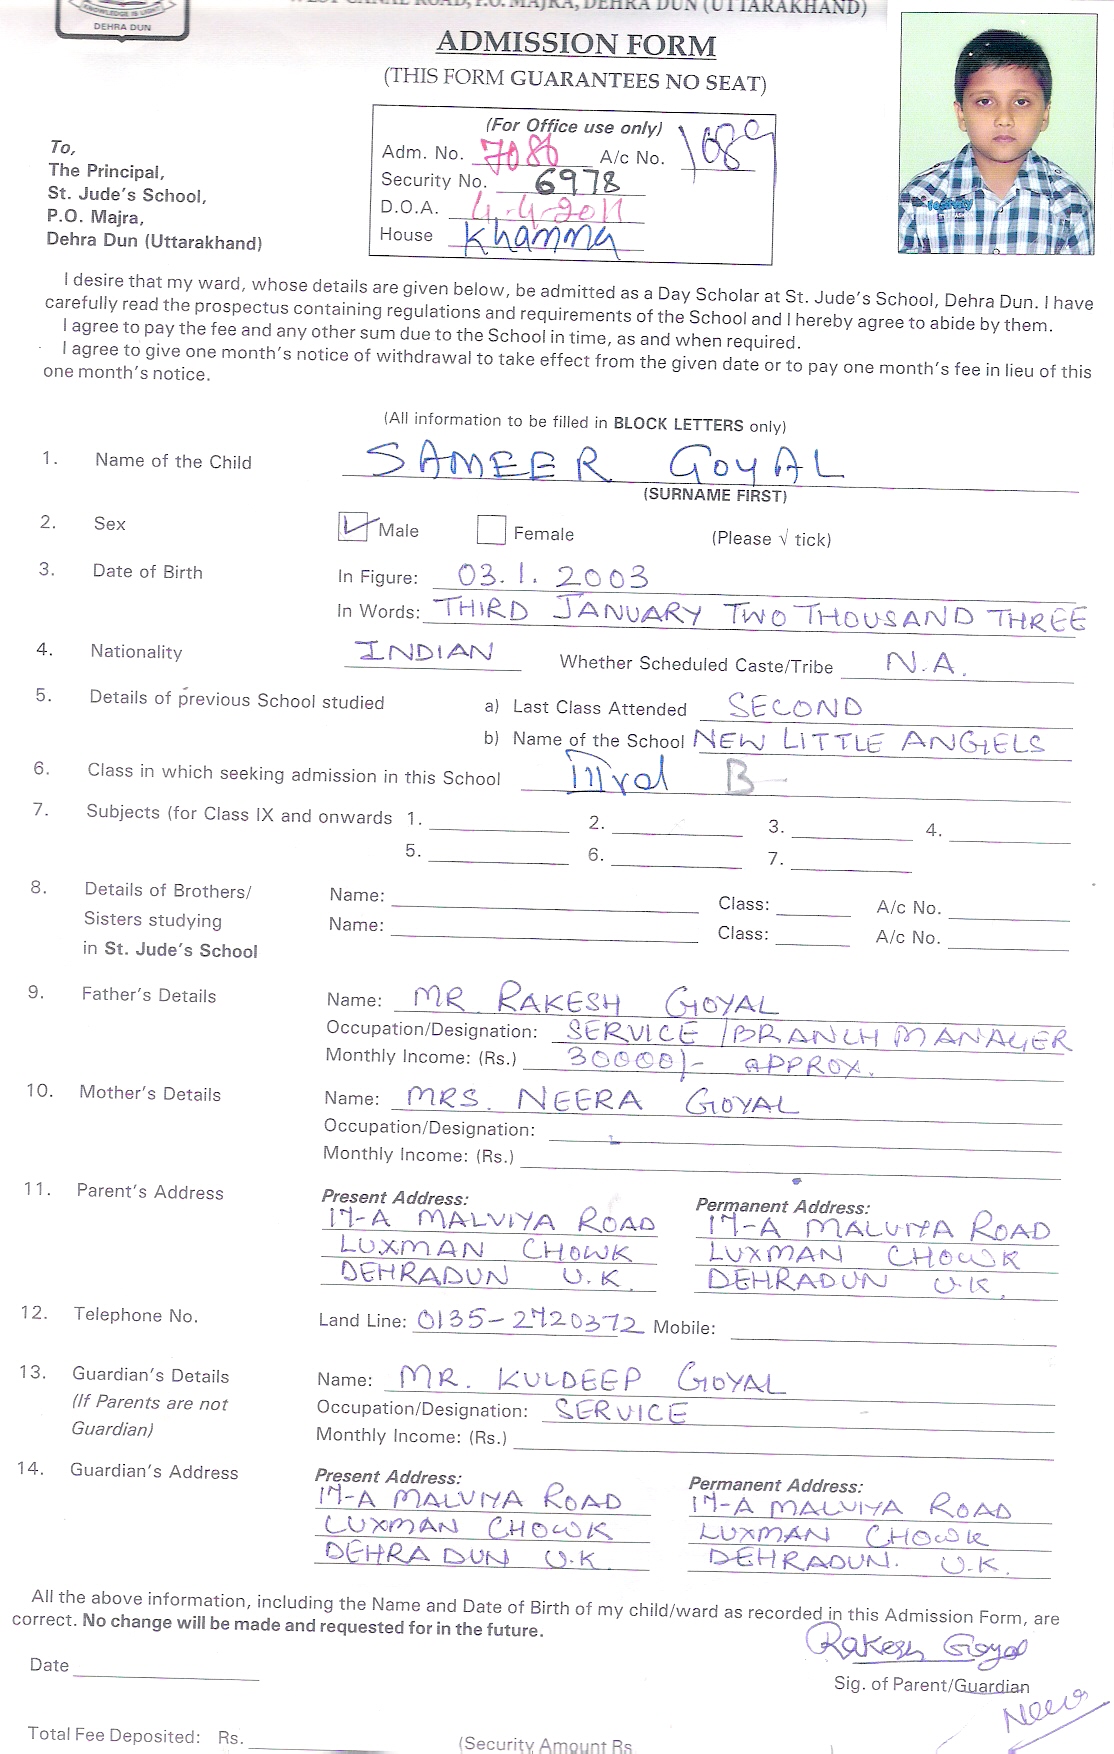 KNOWLEDGE IS LIGHT
DEHRA DUN
WEST CANAL ROAD, P.O. MAJRA, DEHRA DUN (UTTARAKHAND)
ADMISSION FORM
(THIS FORM GUARANTEES NO SEAT)
(For Office use only)
Adm. No. 7086 A/c No. 1089
Security No. 6978
D.O.A. 4-4-2011
House Khamma
To,
The Principal,
St. Jude's School,
P.O. Majra,
Dehra Dun (Uttarakhand)
I desire that my ward, whose details are given below, be admitted as a Day Scholar at St. Jude's School, Dehra Dun. I have
carefully read the prospectus containing regulations and requirements of the School and I hereby agree to abide by them.
I agree to pay the fee and any other sum due to the School in time, as and when required.
I agree to give one month's notice of withdrawal to take effect from the given date or to pay one month's fee in lieu of this
one month's notice.
(All information to be filled in BLOCK LETTERS only)
1. Name of the Child SAMEER GOYAL
(SURNAME FIRST)
2. Sex Male Female (Please √ tick)
3. Date of Birth In Figure: 03.1.2003
In Words: THIRD JANUARY TWO THOUSAND THREE
4. Nationality INDIAN Whether Scheduled Caste/Tribe N.A.
5. Details of previous School studied a) Last Class Attended SECOND
b) Name of the School NEW LITTLE ANGELS
6. Class in which seeking admission in this School IIIrd B
7. Subjects (for Class IX and onwards 1. 2. 3. 4.
5. 6. 7.
8. Details of Brothers/ Name: Class: A/c No.
Sisters studying Name: Class: A/c No.
in St. Jude's School
9. Father's Details Name: MR RAKESH GOYAL
Occupation/Designation: SERVICE /BRANCH MANAGER
Monthly Income: (Rs.) 30000/- APPROX.
10. Mother's Details Name: MRS. NEERA GOYAL
Occupation/Designation:
Monthly Income: (Rs.)
11. Parent's Address Present Address: Permanent Address:
17-A MALVIYA ROAD 17-A MALVIYA ROAD
LUXMAN CHOWK LUXMAN CHOWK
DEHRADUN U.K. DEHRADUN U.K.
12. Telephone No. Land Line: 0135-2720372 Mobile:
13. Guardian's Details Name: MR. KULDEEP GOYAL
(If Parents are not Occupation/Designation: SERVICE
Guardian) Monthly Income: (Rs.)
14. Guardian's Address Present Address: Permanent Address:
17-A MALVIYA ROAD 17-A MALVIYA ROAD
LUXMAN CHOWK LUXMAN CHOWK
DEHRA DUN U.K. DEHRADUN. U.K.
All the above information, including the Name and Date of Birth of my child/ward as recorded in this Admission Form, are
correct. No change will be made and requested for in the future.
Rakesh Goyal
Date Sig. of Parent/Guardian
Total Fee Deposited: Rs. (Security Amount Rs